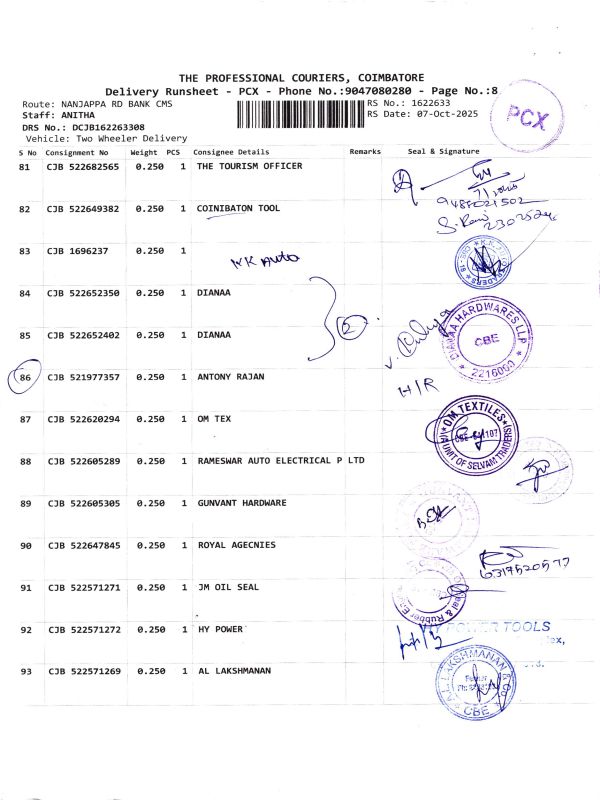 THE PROFESSIONAL COURIERS, COIMBATORE
Delivery Runsheet - PCX - Phone No.:9047080280 - Page No.:8
Route: NANJAPPA RD BANK CMS
RS No.: 1622633
Staff: ANITHA
RS Date: 07-Oct-2025
PCX
DRS No.: DCJB162263308
Vehicle: Two Wheeler Delivery
S No Consignment No Weight PCS Consignee Details Remarks Seal & Signature
81 CJB 522682565 0.250 1 THE TOURISM OFFICER
82 CJB 522649382 0.250 1 COINIBATON TOOL
83 CJB 1696237 0.250 1
KK Auto
84 CJB 522652350 0.250 1 DIANAA
2
85 CJB 522652402 0.250 1 DIANAA
DIANAA HARDWARES LLP
CBE
2216060
86 CJB 521977357 0.250 1 ANTONY RAJAN
H/R
87 CJB 522620294 0.250 1 OM TEX
OM TEXTILES
(A UNIT OF SELVAM TRADERS)
88 CJB 522605289 0.250 1 RAMESWAR AUTO ELECTRICAL P LTD
89 CJB 522605305 0.250 1 GUNVANT HARDWARE
90 CJB 522647845 0.250 1 ROYAL AGECNIES
91 CJB 522571271 0.250 1 JM OIL SEAL
92 CJB 522571272 0.250 1 HY POWER
POWER TOOLS
93 CJB 522571269 0.250 1 AL LAKSHMANAN
AL. LAKSHMANAN & CO
CBE